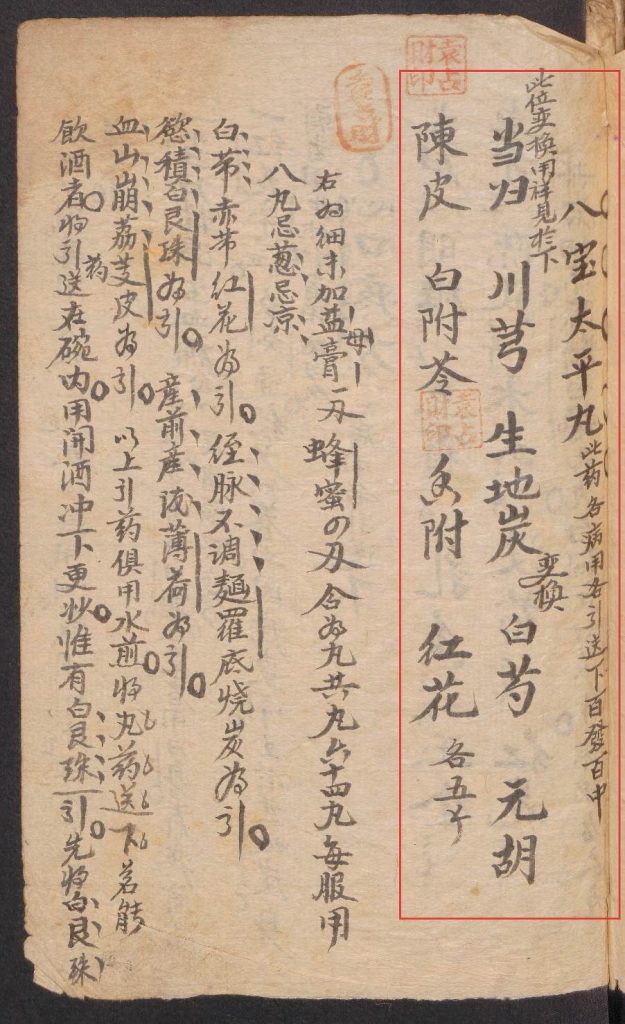 八宝太平丸 此药各病用各引送下百發百中
此位变换用詳見於下
当归 川芎 生地炭 白芍 元胡
变换
陳皮 白附苓 香附 红花 各五分
袁占財印
袁占財印
右为细末加益母膏一刃蜂蜜四刃合为丸共丸六十四丸每服用
八丸忌葱忌凉
白带赤带红花为引 经脉不调麺羅底烧炭为引
慾積白艮珠为引 産前産後薄荷为引
血山崩荔芰皮为引 以上引药俱用水煎将丸药送下若能
飲酒者将引药送在碗内用開酒冲下更妙惟有白艮珠引先将白艮珠